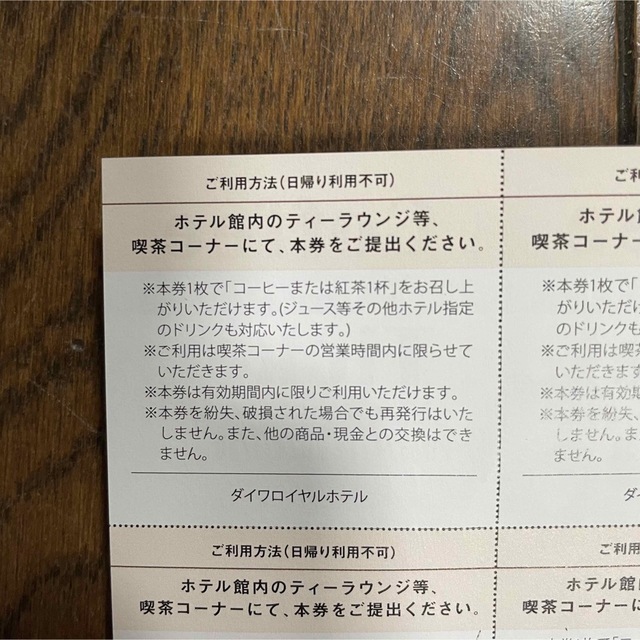 ご利用方法(日帰り利用不可)
ホテル館内のティーラウンジ等、
喫茶コーナーにて、本券をご提出ください。
※本券1枚で「コーヒーまたは紅茶1杯」をお召し上
がりいただけます。(ジュース等その他ホテル指定
のドリンクも対応いたします。)
※ご利用は喫茶コーナーの営業時間内に限らせて
いただきます。
※本券は有効期間内に限りご利用いただけます。
※本券を紛失、破損された場合でも再発行はいた
しません。また、他の商品・現金との交換はでき
ません。
ダイワロイヤルホテル
ご利
ホテル館
喫茶コーナー
※本券1枚で「
がりいただけ
のドリンクも
※ご利用は喫
いただきます
※本券は有効期
※本券を紛失、
しません。ま
ません。
ダイ
ご利用方法(日帰り利用不可)
ホテル館内のティーラウンジ等、
喫茶コーナーにて、本券をご提出ください。
ご利用
ホテル館
喫茶コーナー